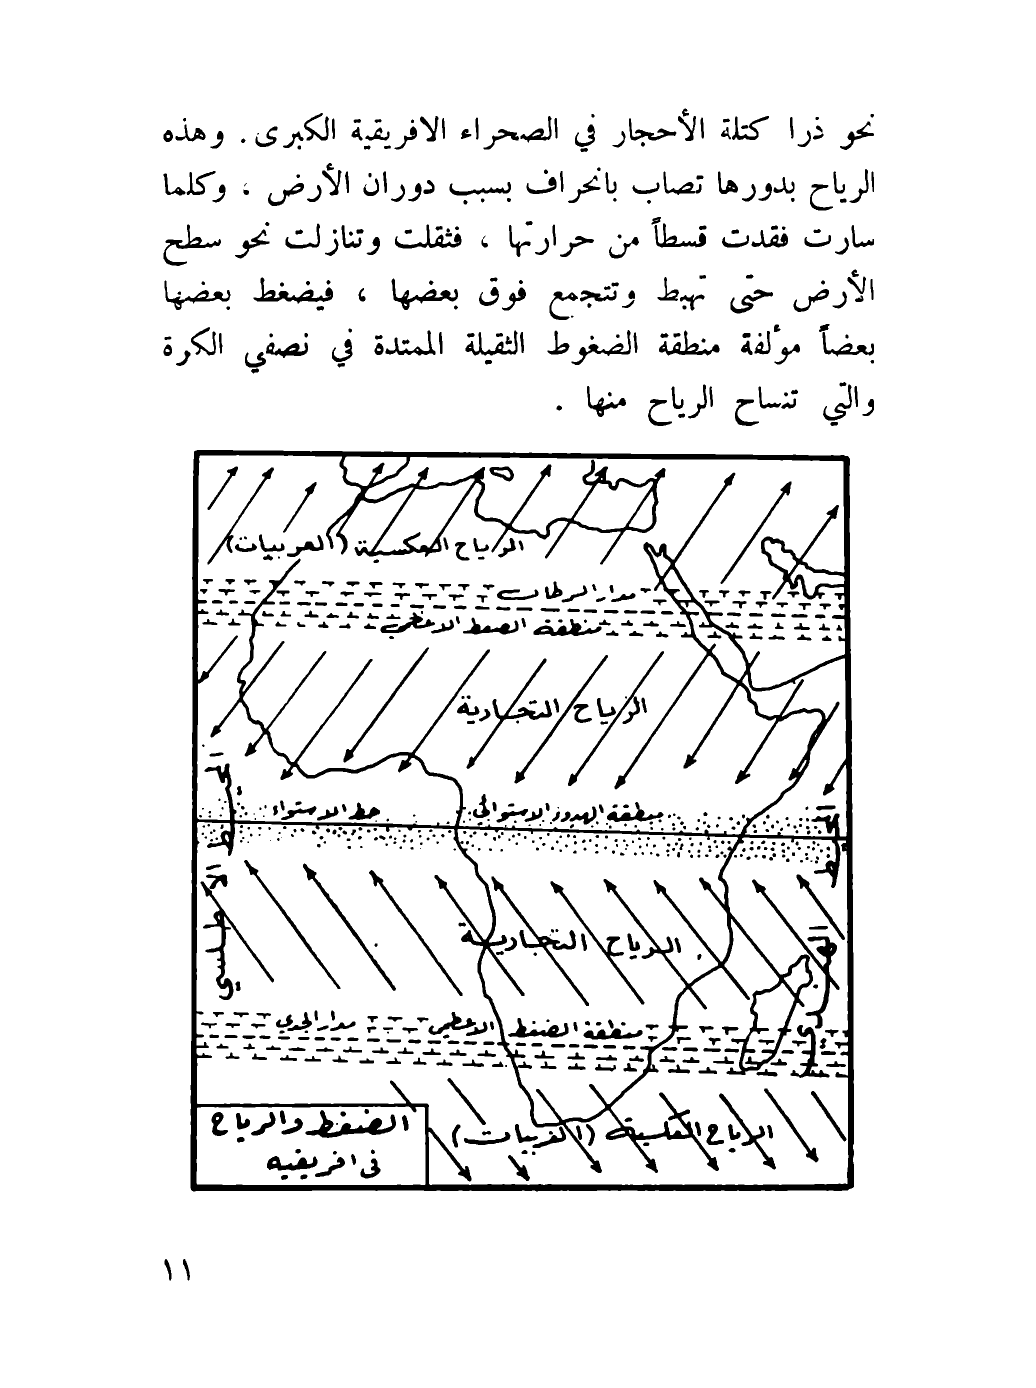 نحو ذرا كتلة الأحجار في الصحراء الافريقية الكبرى. وهذه
الرياح بدورها تصاب بانحراف بسبب دوران الأرض ، وكلما
سارت فقدت قسطاً من حرارتها ، فثقلت وتنازلت نحو سطح
الأرض حتى تهبط وتتجمع فوق بعضها ، فيضغط بعضها
بعضاً مؤلفة منطقة الضغوط الثقيلة الممتدة في نصفي الكرة
والتي تنساح الرياح منها .
الرياح العكسية (الغربيات)
مدار السرطان
منطقة الضغط الاعظمي
الرياح التجارية
منطقة الهدوء الاستوائي
خط الاستواء
المحيط الاطلسي
المحيط الهندي
الرياح التجارية
منطقة الضغط الاعظمي
مدار الجدي
الرياح العكسية (الغربيات)
الضغط والرياح
في افريقيه
١١